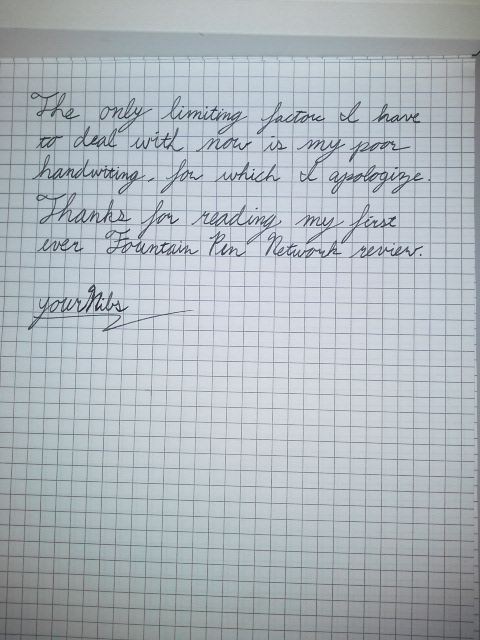 The only limiting factor I have
to deal with now is my poor
handwiting, for which I apologize.
Thanks for reading my first
ever Fountain Pen Network review.
yourNibs